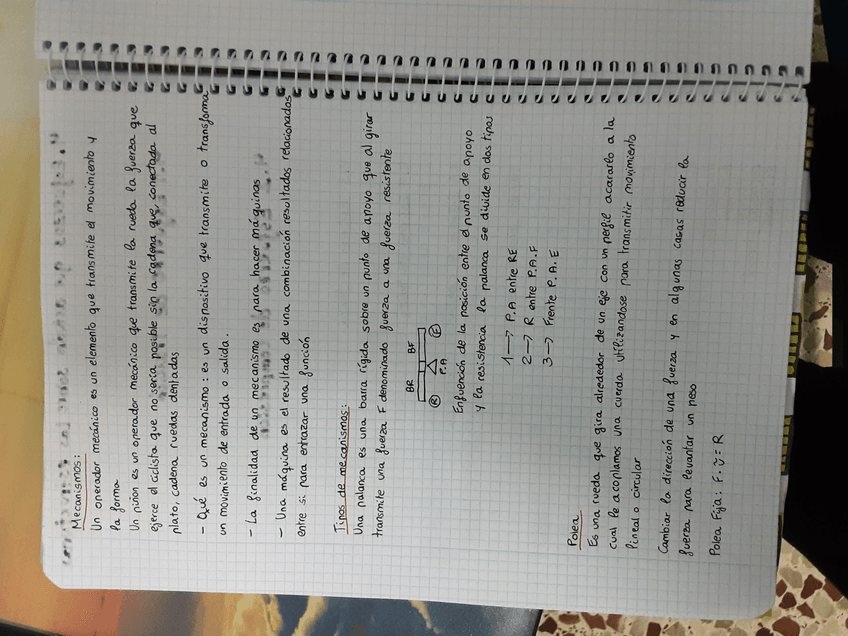 Mecanismos:
Un operador mecánico es un elemento que transmite el movimiento y
la forma
Un piñon es un operador mecánico que transmite la rueda la fuerza que
ejerce el ciclista que no seria posible sin la cadena que conectada al
plato, cadena ruedas dentadas
- Qué es un mecanismo: es un dispositivo que transmite o transforma
un movimiento de entrada o salida.
- La finalidad de un mecanismo es para hacer máquinas
- Una máquina es el resultado de una combinación resultados relacionados
entre si para entrazar una función
Tipos de mecanismos:
Una palanca es una barra rígida sobre un punto de apoyo que al girar
transmite una fuerza F denominado fuerza a una fuerza resistente
BR BF
R P.A F
de la posición entre el punto de apoyo
y la resistencia la palanca se divide en dos tipos
1 → P.A entre RE
2 → R entre P.A.F
3 → Frente P.A.E
Polea
Es una rueda que gira alrededor de un eje con un perfil acararlo a la
cual le acoplamos una cuerda utilizandose para transmitir movimiento
lineal o circular
Cambiar la dirección de una fuerza y en algunas casas reducir la
fuerza para levantar un peso
Polea Fija: F = R